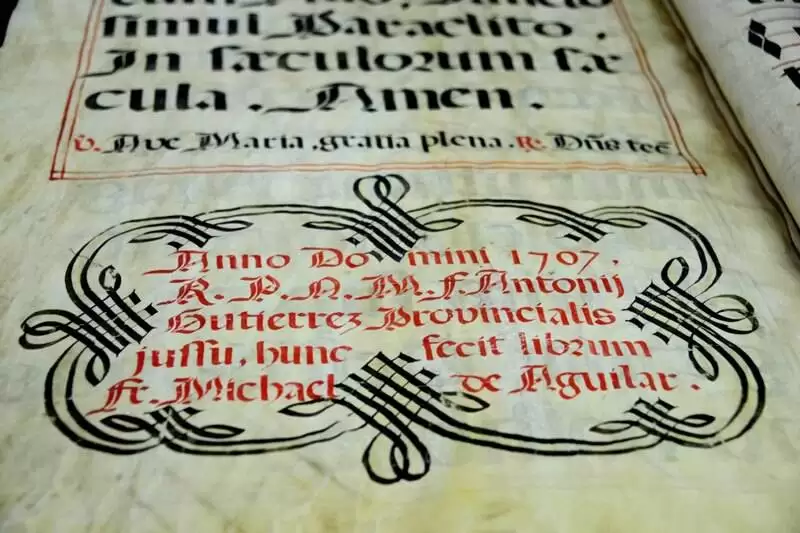 simul Paraclito.
In sæculorum sæ
cula. Amen.
V. Ave Maria, gratia plena. R. Dñs tec̄.
Anno Domini 1707.
R. P. N. M. F. Antonij
Gutierrez Provincialis
jussu, hunc fecit librum
Fr. Michael de Aguilar.